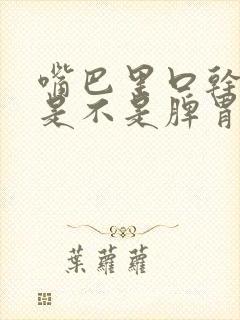 嘴巴里口幹
是不是脾胃
葉蘿蘿